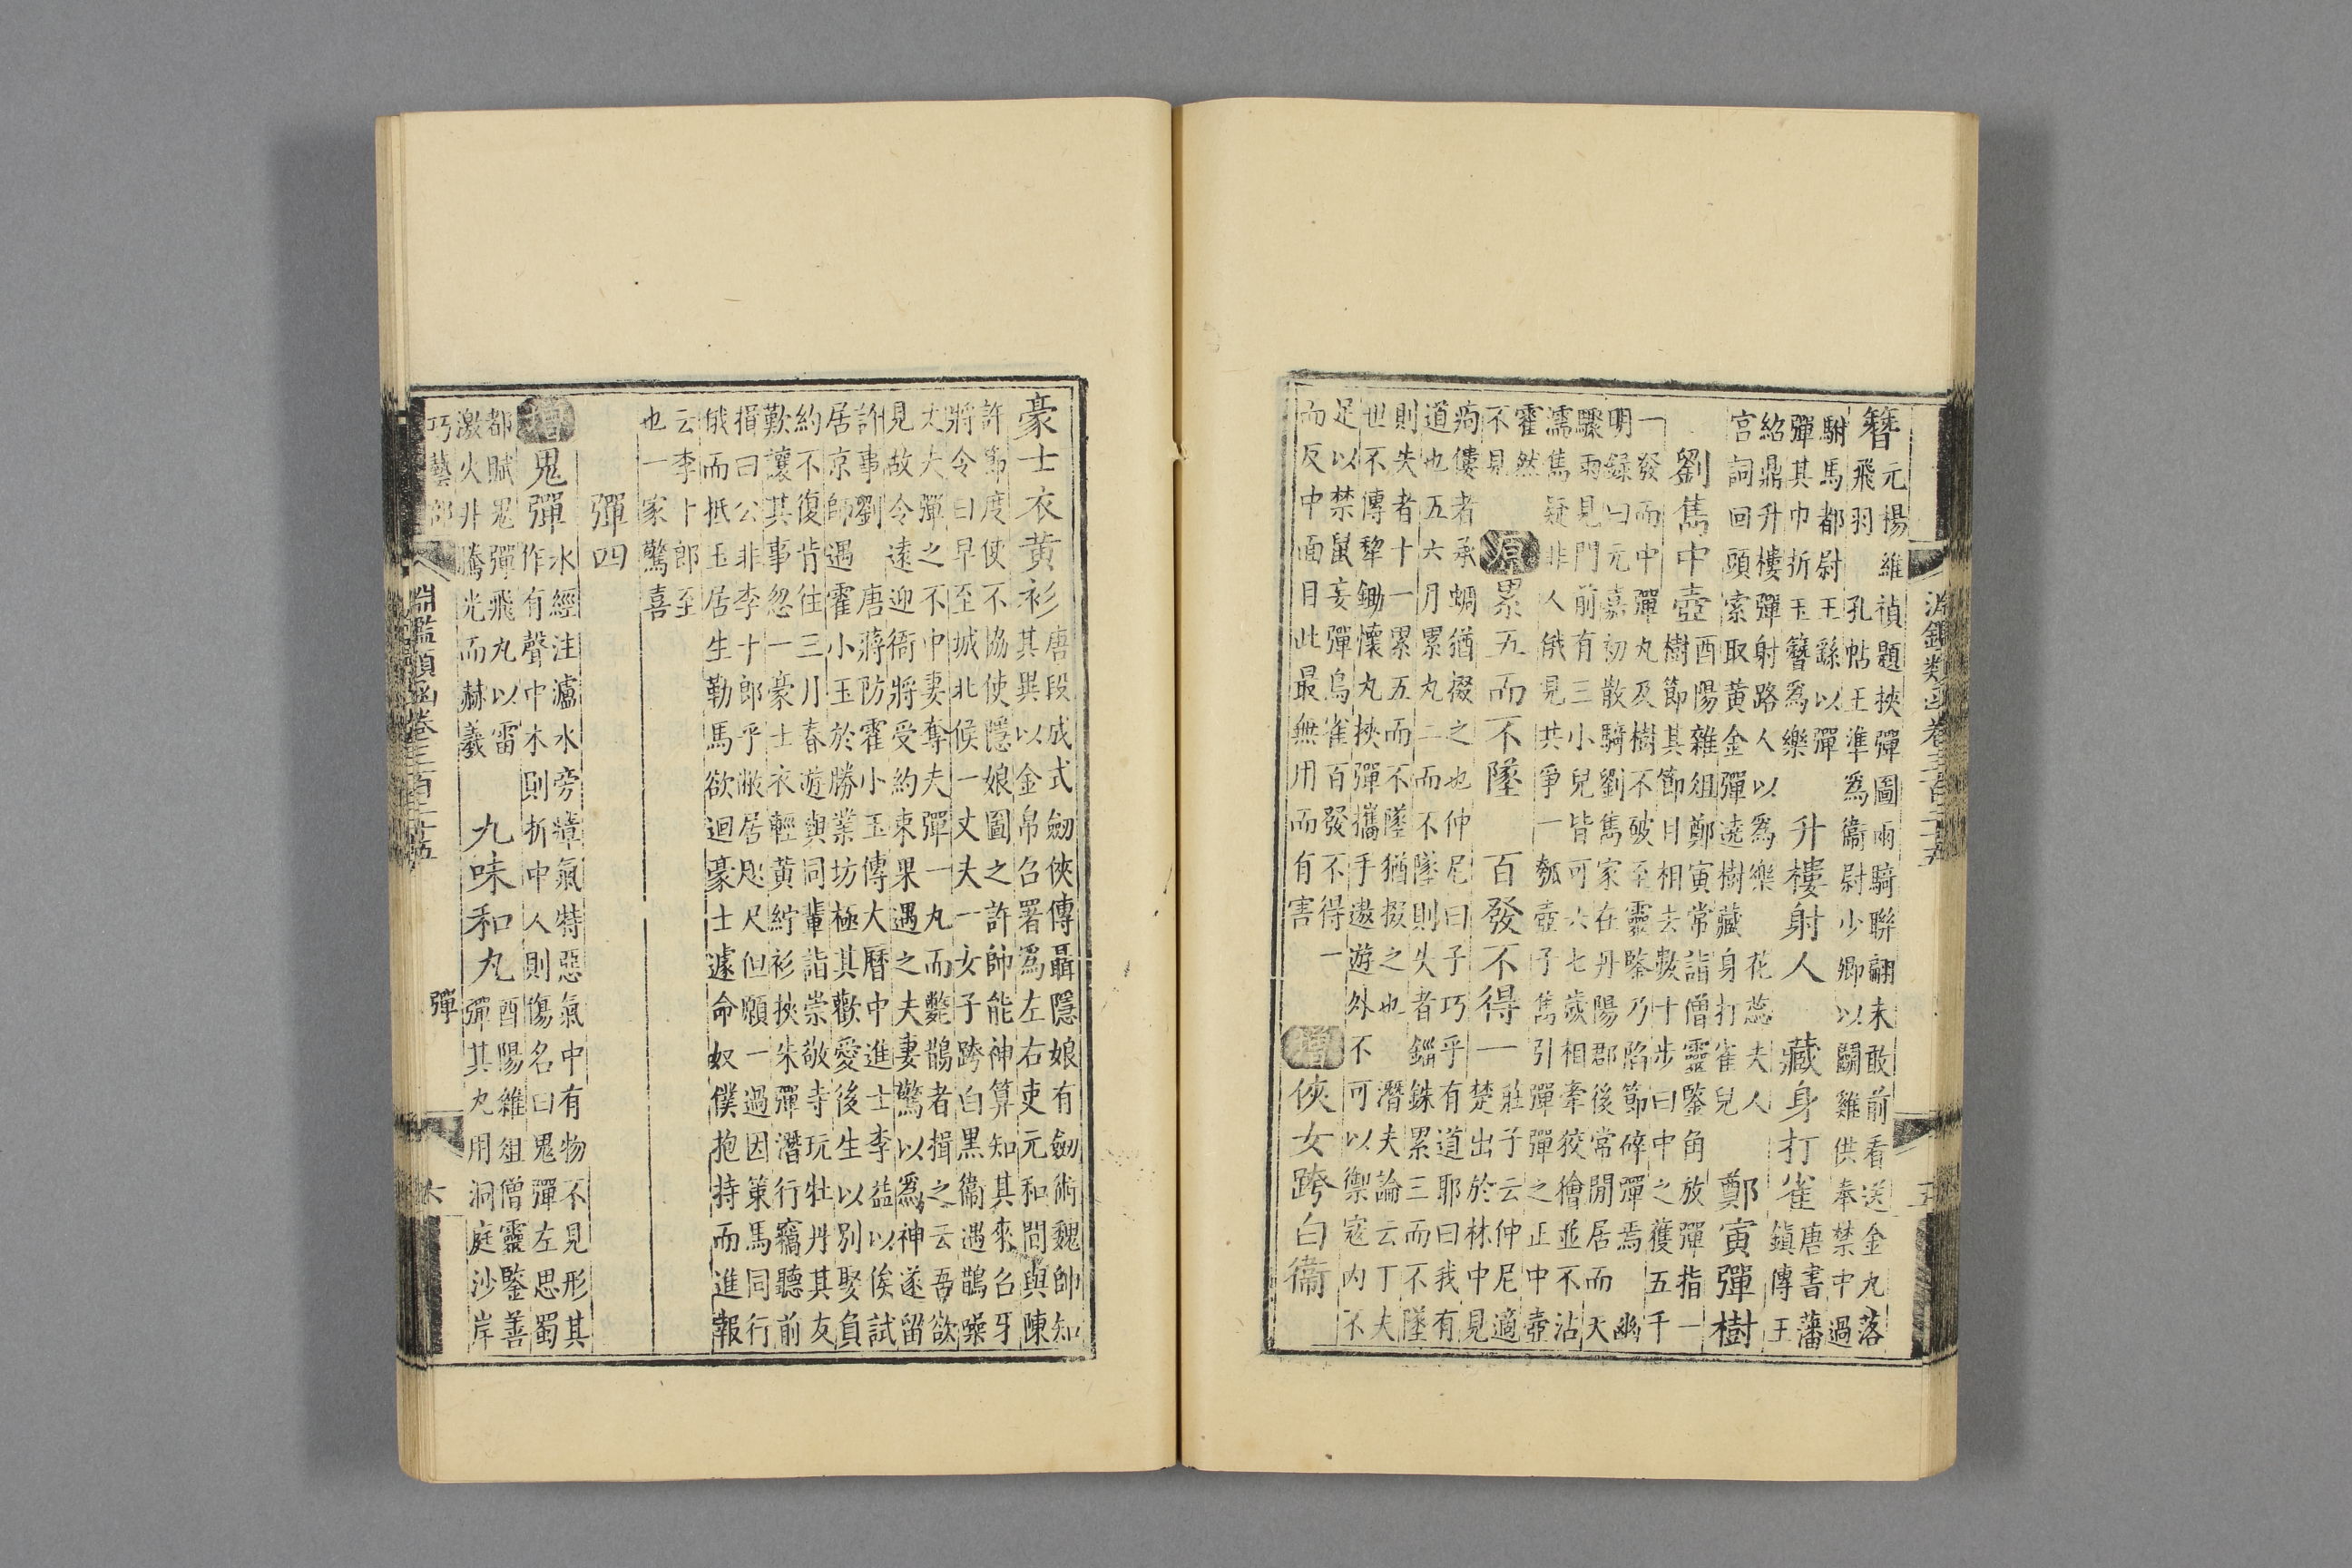 淵鑑類函卷三百二十五
簪
元楊維禎題挾彈圖兩騎聯翩未敢前看送金丸落
飛羽 孔帖王準爲衞尉少卿以鬬雞供奉禁中過
駙馬都尉王繇以彈
彈其巾折玉簪爲樂
升樓射人 藏身打雀
唐書藩
鎮傳王
紹鼎升樓彈射路人以爲樂 花蕊夫人
宮詞回頭索取黃金彈遶樹藏身打雀兒
鄭寅彈樹
劉雋中壺
酉陽雜俎鄭寅常詣僧靈鑒角放彈指一
樹節其節目相去數十步曰中之獲五千
一發而中彈丸及樹不破至靈鑒乃陷節碎彈焉 幽
明錄曰元嘉初散騎劉雋家在丹陽郡後常閒居而天
驟雨見門前有三小兒皆可六七歲相牽狡獪並不沾
濡雋疑非人俄見共爭一瓠壺子雋引彈彈之正中壺
霍然
不見
原 累五而不墜 百發不得一
莊子云仲尼適
楚出於林中見
痀僂者承蜩猶掇之也仲尼曰子巧乎有道耶曰我有
道也五六月累丸二而不墜則失者錙銖累三而不墜
則失者十一累五而不墜猶掇之也 潛夫論云丁夫
世不傳犂鋤懷丸挾彈攜手遨遊外不可以禦寇內不
足以禁鼠妄彈烏雀百發不得一
而反中面目此最無用而有害
增 俠女跨白衞
豪士衣黃衫
唐段成式劍俠傳聶隱娘有劍術魏帥知
其異以金帛召署爲左右吏元和間與陳
許節度使不協使隱娘圖之許帥能神算知其來召牙
將令曰早至城北候一丈夫一女子跨白黑衞遇鵲噪
丈夫彈之不中妻奪夫彈一丸而斃鵲者揖之云吾欲
見故令遠迎衙將受約束果遇之夫妻驚以爲神遂留
許事劉 唐蔣防霍小玉傳大曆中進士李益以俟試
居京師遇霍小玉於勝業坊極其歡愛後生以別娶負
約不復肯住三月春遊與同輩詣崇敬寺玩牡丹其友
歎讓其事忽一豪士衣輕黃紵衫挾朱彈潛行竊聽前
揖曰公非李十郎乎敝居咫尺但願一過因策馬同行
俄而抵玉居生勒馬欲迴豪士遽命奴僕抱持而進報
云李十郎至
也一家驚喜
彈四
增 鬼彈
水經注瀘水旁瘴氣特惡氣中有物不見形其
作有聲中木則折中人則傷名曰鬼彈左思蜀
都賦鬼彈飛丸以雷
激火井騰光而赫羲
九味和丸
酉陽雜俎僧靈鑒善
彈其丸用洞庭沙岸
巧藝部 淵鑑類函卷三百二十五 彈 六